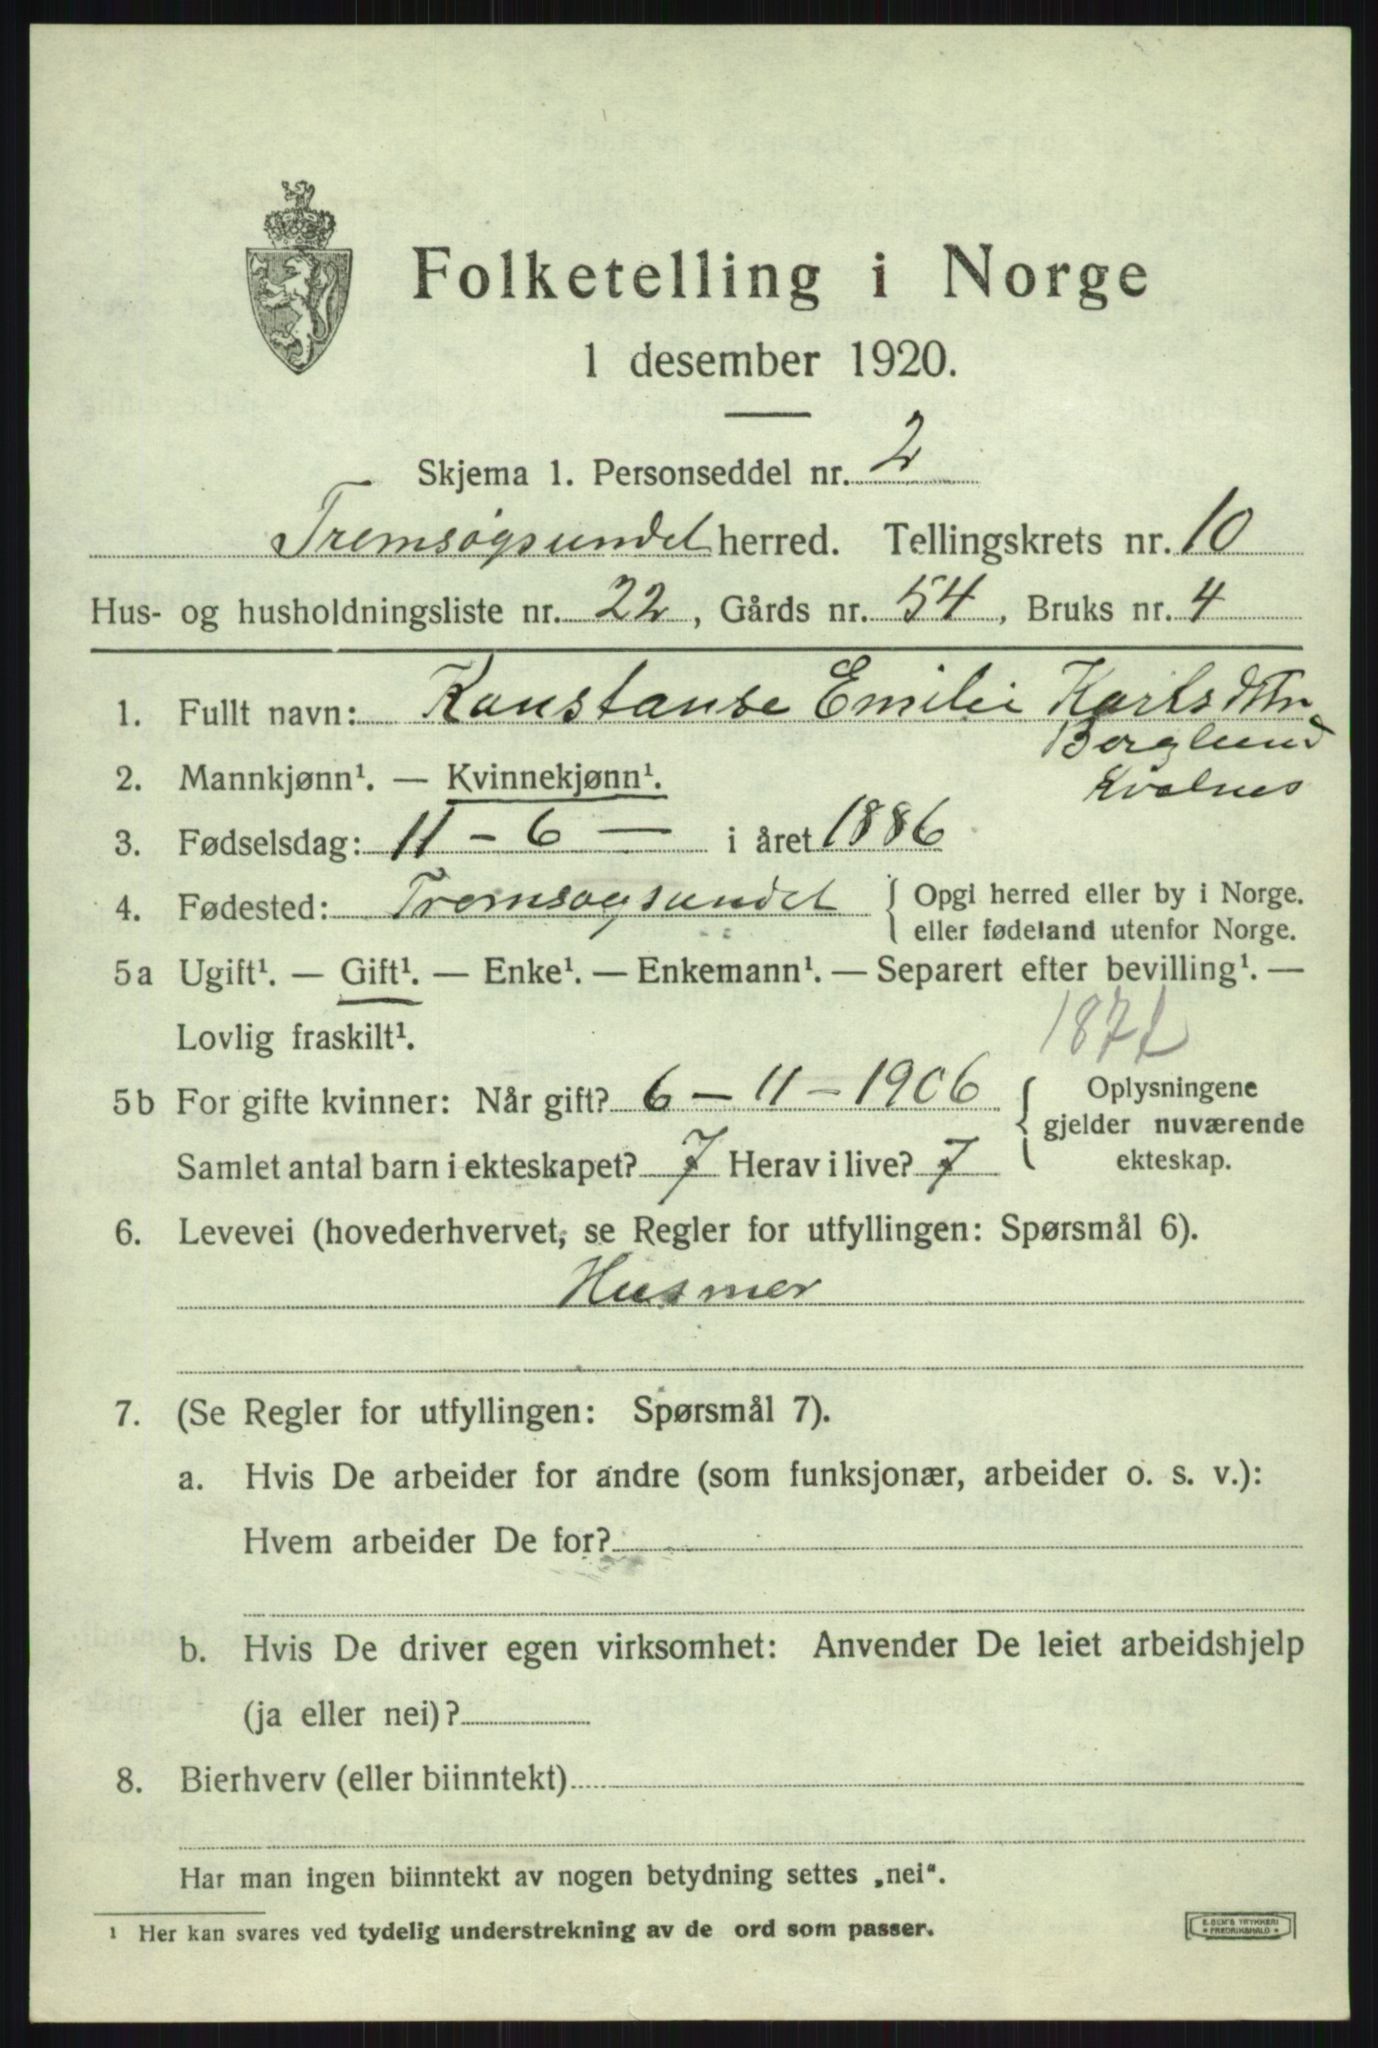 Folketelling i Norge
1 desember 1920.
Skjema 1. Personseddel nr. 2
Tromsøysundet herred. Tellingskrets nr. 10
Hus- og husholdningsliste nr. 22, Gårds nr. 54, Bruks nr. 4
1. Fullt navn: Konstanse Emilie Karlsdtr.
Berglund
Kvalnes
2. Mannkjønn¹. — Kvinnekjønn¹.
3. Fødselsdag: 11 - 6 — i året 1886
4. Fødested: Tromsøysundet { Opgi herred eller by i Norge.
eller fødeland utenfor Norge.
5a Ugift¹. — Gift¹. — Enke¹. — Enkemann¹. — Separert efter bevilling¹. —
Lovlig fraskilt¹.
1871
5b For gifte kvinner: Når gift? 6 - 11 - 1906 { Oplysningene
gjelder nuværende
ekteskap.
Samlet antal barn i ekteskapet? 7 Herav i live? 7
6. Levevei (hovederhvervet, se Regler for utfyllingen: Spørsmål 6).
Husmor
7. (Se Regler for utfyllingen: Spørsmål 7).
a. Hvis De arbeider for andre (som funksjonær, arbeider o. s. v.):
Hvem arbeider De for?
b. Hvis De driver egen virksomhet: Anvender De leiet arbeidshjelp
(ja eller nei)?
8. Bierhverv (eller biinntekt)
Har man ingen biinntekt av nogen betydning settes „nei“.
¹ Her kan svares ved tydelig understrekning av de ord som passer.
E. SEM'S TRYKKERI
* FREDRIKSHALD *